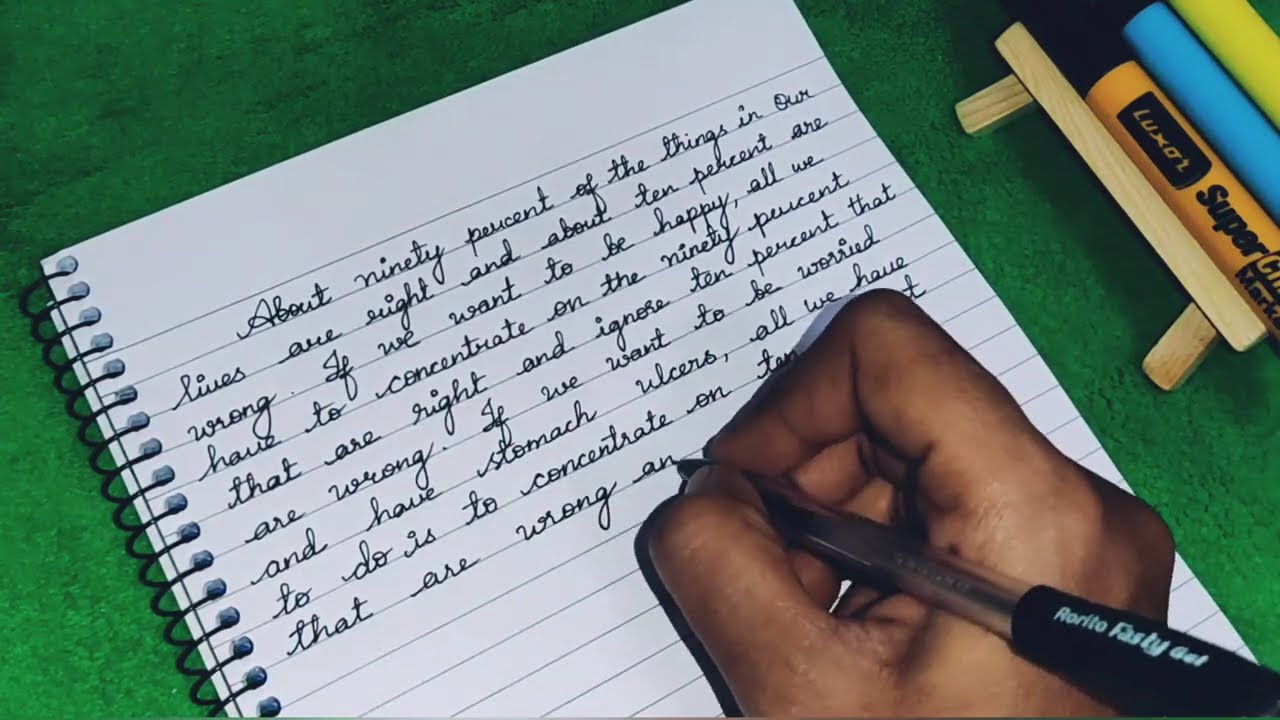 About ninety percent of the things in Our
lives are right and about ten percent are
wrong. If we want to be happy, all we
have to concentrate on the ninety percent
that are right and ignore ten percent that
are wrong. If we want to be worried
and have stomach ulcers, all we have
to do is to concentrate on ten
that are wrong an
Luxor
Super
Rorito Fasty Gel